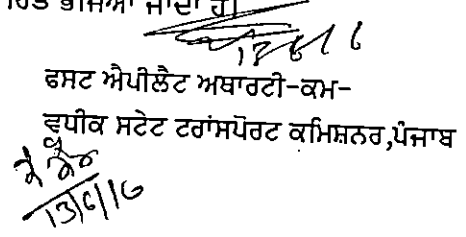 ਹਿਤ ਭੇਜਿਆ ਜਾਂਦਾ ਹੈ।
ਫਸਟ ਐਪੀਲੈਟ ਅਥਾਰਟੀ-ਕਮ-
ਵਧੀਕ ਸਟੇਟ ਟਰਾਂਸਪੋਰਟ ਕਮਿਸ਼ਨਰ,ਪੰਜਾਬ
13/6/16